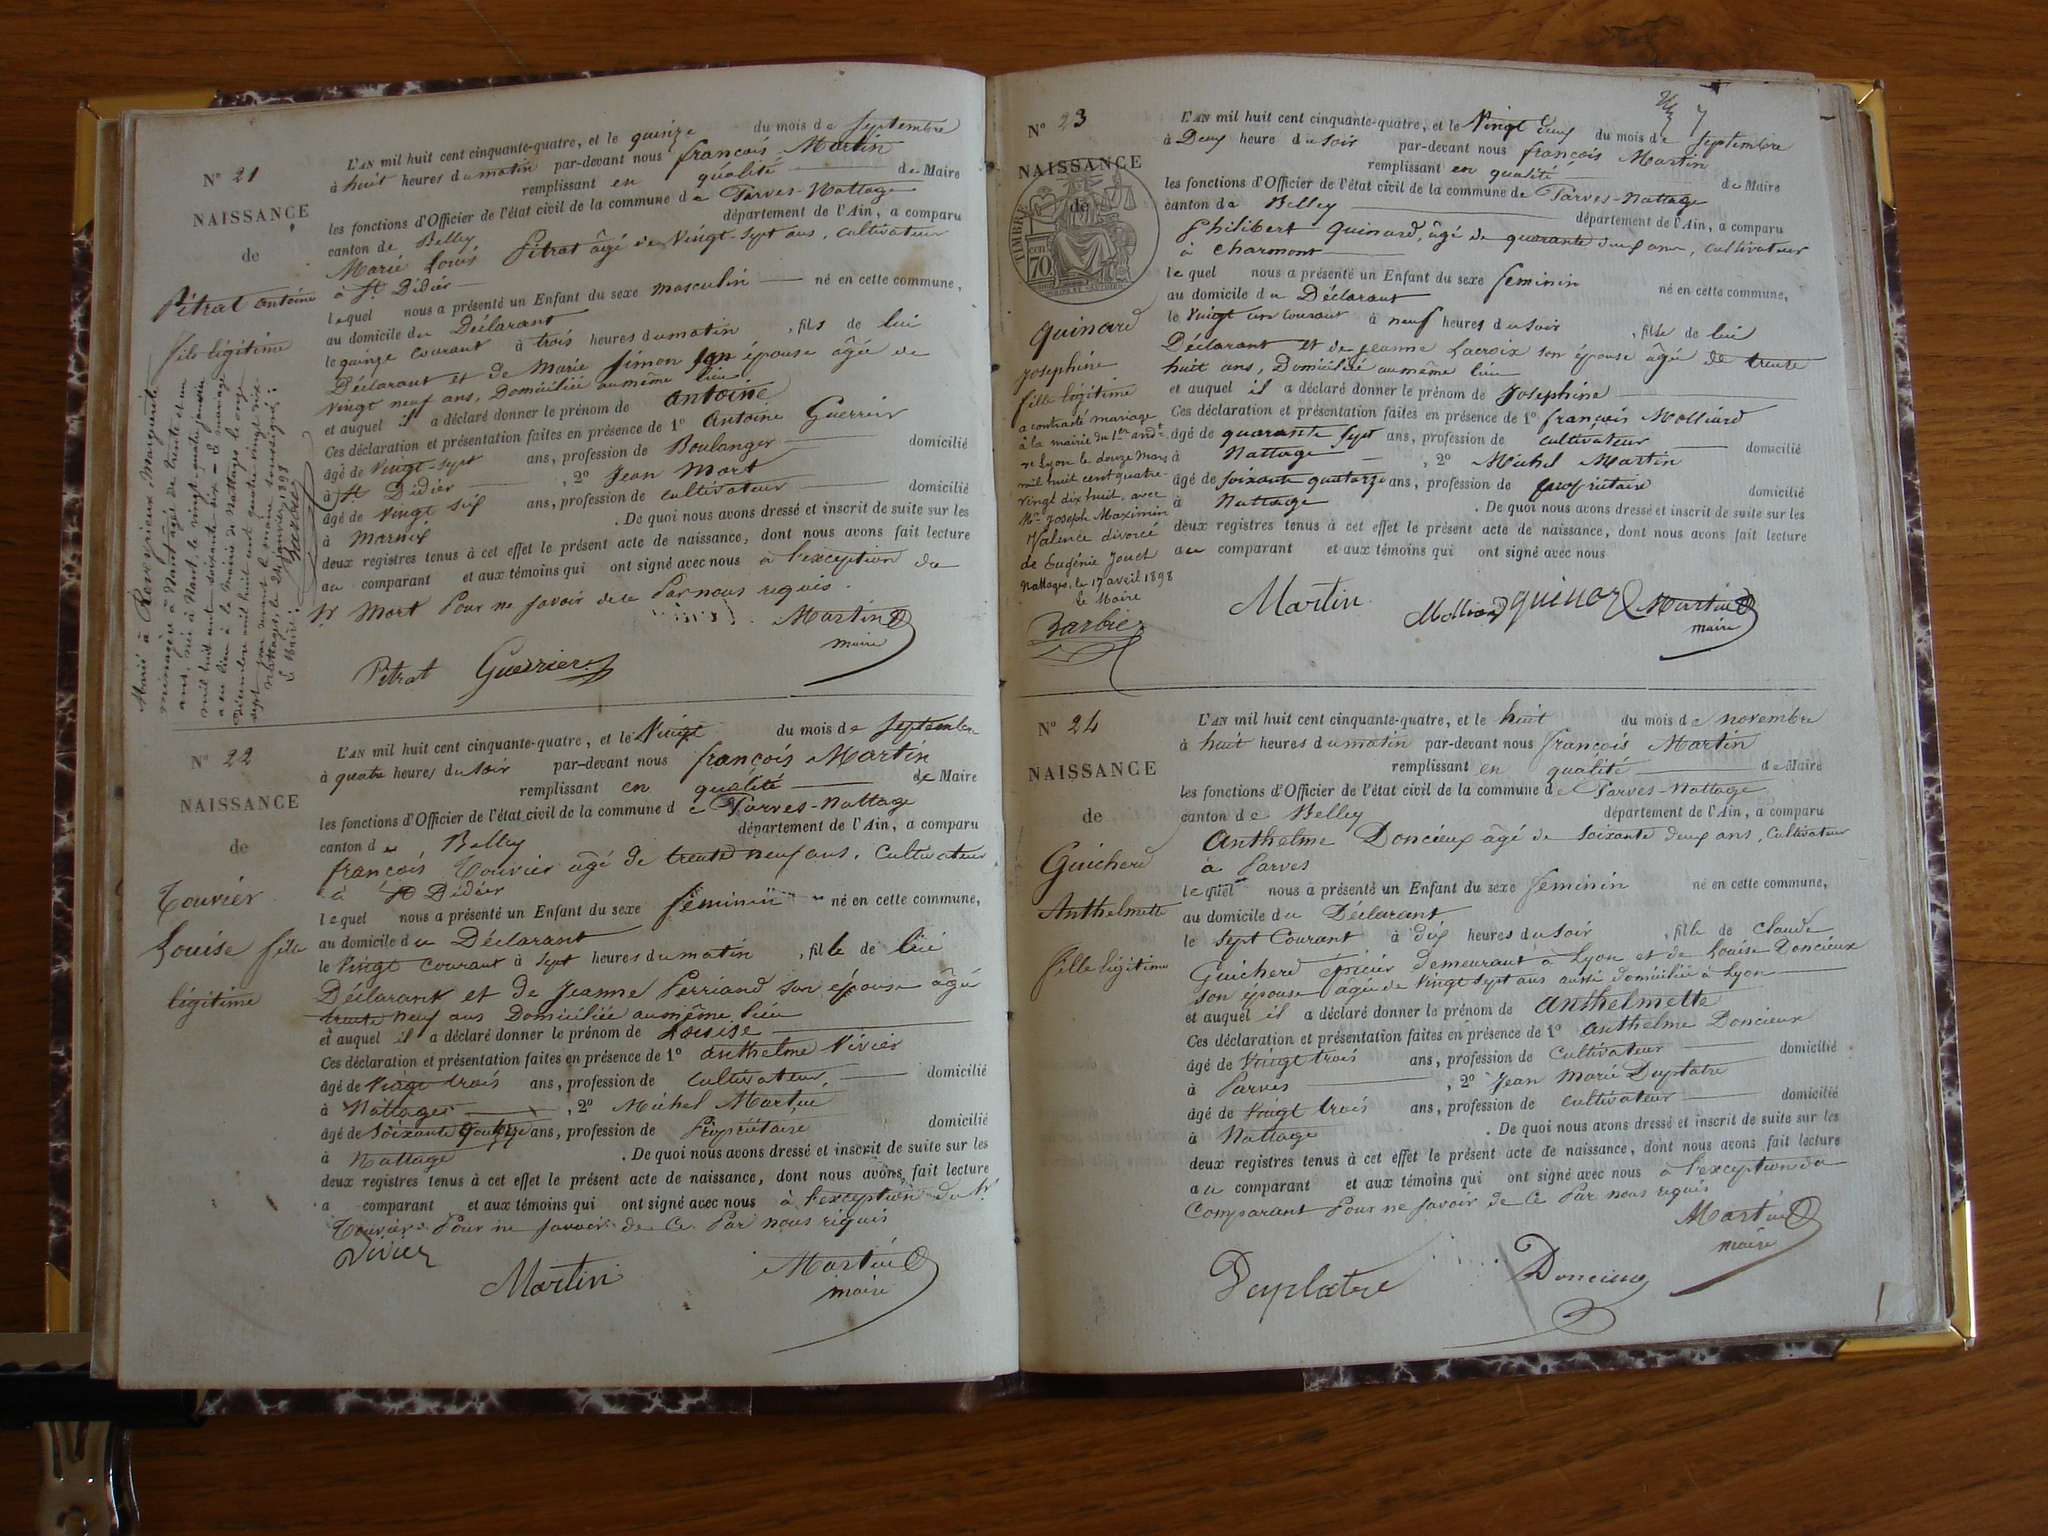 N° 21
NAISSANCE
de
Pitrat antoine
fils légitime
Marié à Rose Vieux Marguerite
ménagère à Nant âgée de trente et un
ans, née à Nant, le vingt-quatre janvier
mil huit cent soixante-six. Le mariage
a eu lieu à la mairie de Nattages le onze
Décembre mil huit cent quatre vingt dix
sept par devant le maire soussigné:
Nattages, le 24 janvier 1898
Le Maire:
Barbier
L'AN mil huit cent cinquante-quatre, et le quinze du mois de septembre
à huit heures du matin par-devant nous françois Martin
remplissant en qualité de Maire
les fonctions d'Officier de l'état civil de la commune de Parves-Nattage
canton de Belley département de l'Ain, a comparu
Marie Louis Pitrat âgé de Vingt-sept ans, cultivateur
à St Didier
lequel nous a présenté un Enfant du sexe masculin né en cette commune,
au domicile du Déclarant
le quinze courant à trois heures du matin, fils de lui
Déclarant et de Marie Simon son épouse âgée de
vingt neuf ans, Domiciliée au même lieu
et auquel il a déclaré donner le prénom de antoine
Ces déclaration et présentation faites en présence de 1° Antoine Guerrier
âgé de vingt-sept ans, profession de Boulanger domicilié
à St Didier, 2° Jean Mort
âgé de vingt six ans, profession de cultivateur domicilié
à Marnix. De quoi nous avons dressé et inscrit de suite sur les
deux registres tenus à cet effet le présent acte de naissance, dont nous avons fait lecture
au comparant et aux témoins qui ont signé avec nous à l'exception du
Sr Mort Pour ne savoir de ce Par nous requis.
Martin
maire
Pitrat Guerrier
N° 22
NAISSANCE
de
Touvier
Louise fille
légitime
L'AN mil huit cent cinquante-quatre, et le Vingt du mois de septembre
à quatre heures du soir par-devant nous françois Martin
remplissant en qualité de Maire
les fonctions d'Officier de l'état civil de la commune de Parves-Nattage
canton de Belley département de l'Ain, a comparu
françois Touvier âgé de trente neuf ans, Cultivateur
à St Didier
lequel nous a présenté un Enfant du sexe féminin né en cette commune,
au domicile du Déclarant
le Vingt courant à sept heures du matin, fille de lui
Déclarant et de Jeanne Perriand son épouse âgée
trente neuf ans Domiciliée au même lieu
et auquel il a déclaré donner le prénom de Louise
Ces déclaration et présentation faites en présence de 1° anthelme Vivier
âgé de Vingt trois ans, profession de cultivateur, domicilié
à Nattages, 2° Michel Martin
âgé de Soixante quatorze ans, profession de Propriétaire domicilié
à Nattage. De quoi nous avons dressé et inscrit de suite sur les
deux registres tenus à cet effet le présent acte de naissance, dont nous avons fait lecture
a comparant et aux témoins qui ont signé avec nous à l'exception du Sr
Touvier Pour ne savoir de ce Par nous requis
Vivier
Martin Martin
maire
7
N° 23
NAISSANCE
de
TIMBRE
70
Quinard
Josephine
fille légitime
a contracté mariage
à la mairie du 1er arrdt
de Lyon le douze Mars
mil huit cent quatre-
vingt dix huit, avec
Mr Joseph Maximin
Valence divorcé
de Eugénie Jouet
Nattages, le 17 avril 1898
Le Maire
Barbier
L'AN mil huit cent cinquante-quatre, et le Vingt deux du mois de septembre
à Deux heure du soir par-devant nous françois Martin
remplissant en qualité de Maire
les fonctions d'Officier de l'état civil de la commune de Parves-Nattage
canton de Belley département de l'Ain, a comparu
Philibert Quinard, âgé de quarante deux ans, cultivateur
à Charmont
lequel nous a présenté un Enfant du sexe féminin né en cette commune,
au domicile du Déclarant
le Vingt un courant à neuf heures du soir, fille de lui
Déclarant et de Jeanne Lacroix son épouse âgée de trente
huit ans, Domiciliée au même lieu
et auquel il a déclaré donner le prénom de Josephine
Ces déclaration et présentation faites en présence de 1° françois Molliard
âgé de quarante sept ans, profession de cultivateur domicilié
à Nattage, 2° Michel Martin
âgé de soixante quatorze ans, profession de propriétaire domicilié
à Nattage. De quoi nous avons dressé et inscrit de suite sur les
deux registres tenus à cet effet le présent acte de naissance, dont nous avons fait lecture
au comparant et aux témoins qui ont signé avec nous
Martin Molliard quinard Martin
maire
N° 24
NAISSANCE
de
Guicherd
Anthelmette
fille légitime
L'AN mil huit cent cinquante-quatre, et le huit du mois de novembre
à huit heures du matin par-devant nous françois Martin
remplissant en qualité de Maire
les fonctions d'Officier de l'état civil de la commune de Parves-Nattage
canton de Belley département de l'Ain, a comparu
Anthelme Doncieux âgé de soixante deux ans, Cultivateur
à Parves
lequel nous a présenté un Enfant du sexe féminin né en cette commune,
au domicile du Déclarant
le sept Courant à dix heures du soir, fille de claude
Guicherd épicier demeurant à Lyon et de Louise Doncieux
son épouse âgée de Vingt sept ans aussi domiciliée à Lyon
et auquel il a déclaré donner le prénom de anthelmette
Ces déclaration et présentation faites en présence de 1° anthelme Doncieux
âgé de Vingt trois ans, profession de Cultivateur domicilié
à Parves, 2° Jean Marie Duplatre
âgé de Vingt trois ans, profession de cultivateur domicilié
à Nattage. De quoi nous avons dressé et inscrit de suite sur les
deux registres tenus à cet effet le présent acte de naissance, dont nous avons fait lecture
au comparant et aux témoins qui ont signé avec nous à l'exception du
Comparant Pour ne savoir de ce Par nous requis
Martin
maire
Duplatre Doncieux